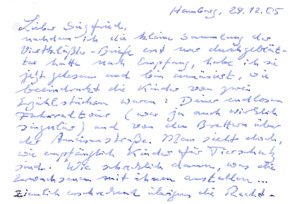 Hamburg, 29.12.05
Lieber Siegfried,
nachdem ich die kleine Sammlung der
-Briefe erst nur durchgeblät-
tert hatte nach Empfang, habe ich sie
jetzt gelesen und bin amüsiert, wie
beeindruckt die Kinder von zwei
waren: Deine endlosen
Fahrradtour (wie ja auch wirklich
singulär) und von den
der Man sieht doch,
wie empfänglich Kinder für Tierschutz
sind. Wie schrecklich dann, was die
Erwachsenen mit ihnen anstellen...
Ziemlich erschreckend übrigens die Recht-